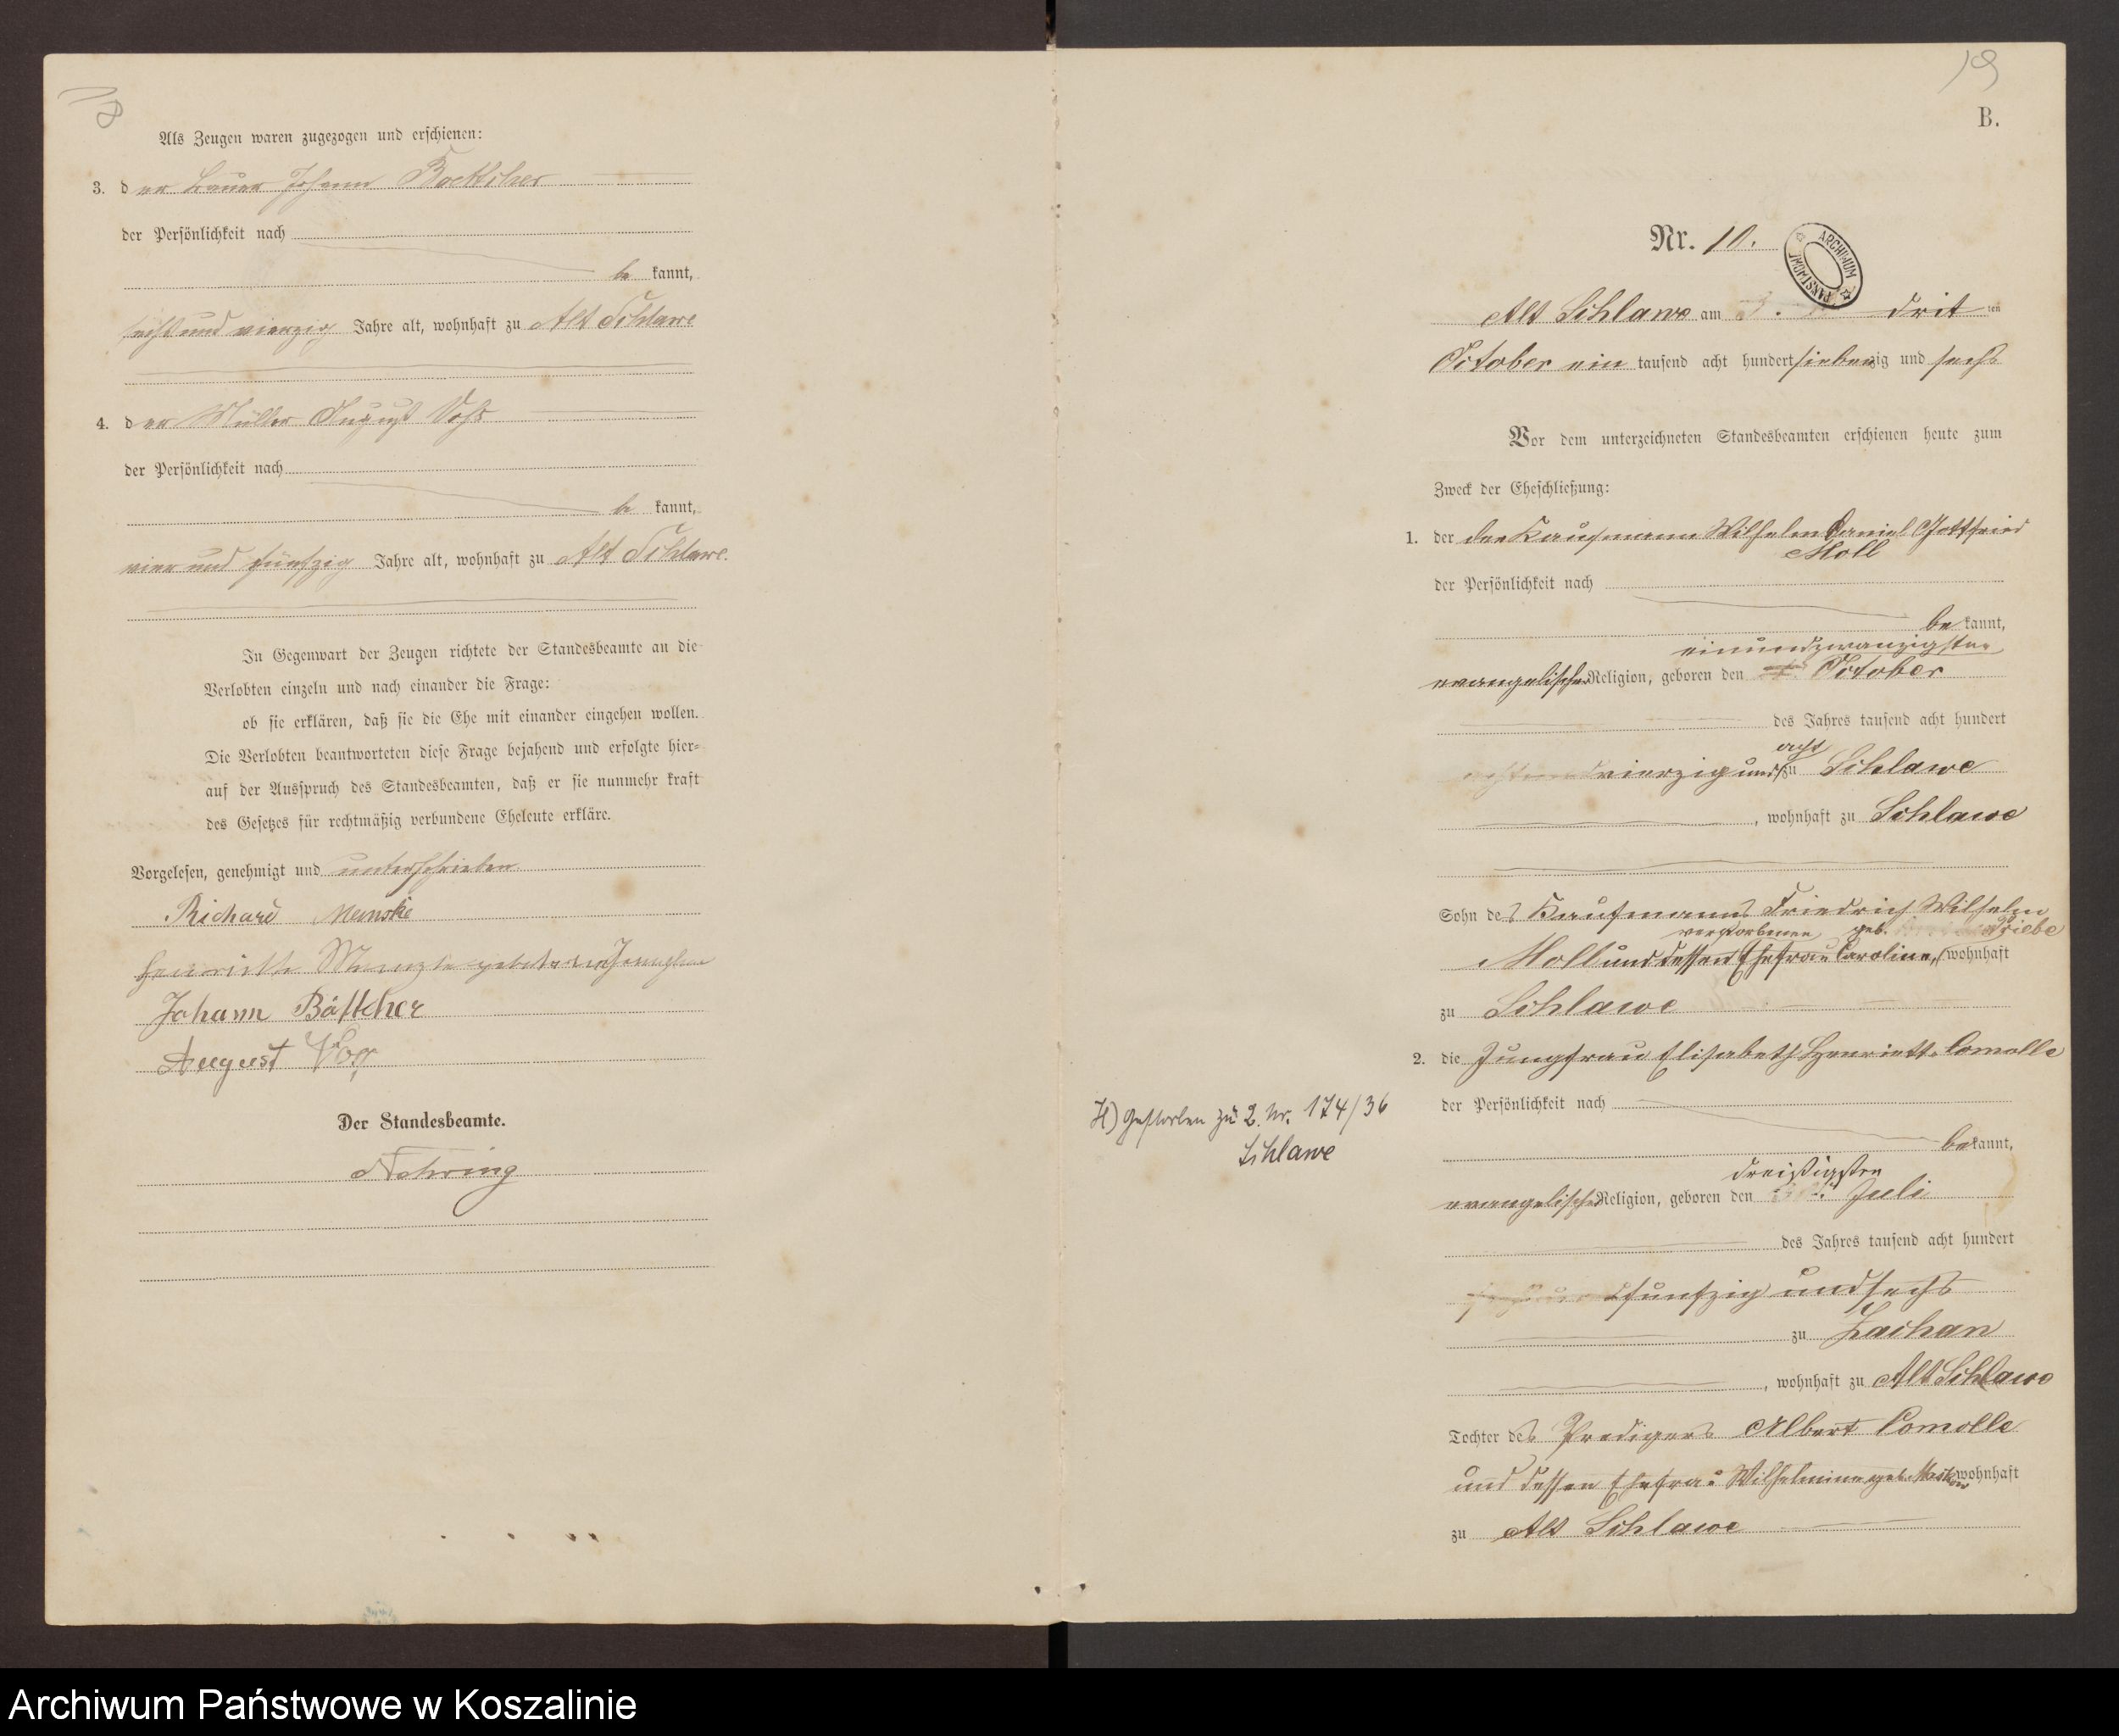 8
Als Zeugen waren zugezogen und erschienen:
3. der Bauer Johann Boettcher
der Persönlichkeit nach
be kannt,
sechs und vierzig Jahre alt, wohnhaft zu Alt Schlawe
4. der Müller August Voß
der Persönlichkeit nach
be kannt,
vier und fünfzig Jahre alt, wohnhaft zu Alt Schlawe.
In Gegenwart der Zeugen richtete der Standesbeamte an die
Verlobten einzeln und nach einander die Frage:
ob sie erklären, daß sie die Ehe mit einander eingehen wollen.
Die Verlobten beantworteten diese Frage bejahend und erfolgte hier-
auf der Ausspruch des Standesbeamten, daß er sie nunmehr kraft
des Gesetzes für rechtmäßig verbundene Eheleute erkläre.
Vorgelesen, genehmigt und unterschrieben
Richard
Henriette
Johann Böttcher
August Voß
Der Standesbeamte.
Nehring
19
B.
Nr. 10.
ARCHIWUM PAŃSTWOWE
Alt Schlawe am dritten
October ein tausend acht hundert siebenzig und sechs
Vor dem unterzeichneten Standesbeamten erschienen heute zum
Zweck der Eheschließung:
1. der der Kaufmann Wilhelm Daniel Gottfried
Moll
der Persönlichkeit nach
be kannt,
einundzwanzigsten
evangelischer Religion, geboren den October
des Jahres tausend acht hundert
acht
vierzig und zu Schlawe
, wohnhaft zu Schlawe
Sohn des Kaufmanns Friedrich Wilhelm
verstorbenen geb. Driebe
Moll und dessen Ehefrau Caroline, wohnhaft
zu Schlawe
2. die Jungfrau Elisabeth Henriette Comolle
der Persönlichkeit nach
be kannt,
H) Gestorben zu 2. Nr. 174/36
Schlawe
dreißigsten
evangelischer Religion, geboren den Juli
des Jahres tausend acht hundert
funfzig und sechs
zu Zachan
, wohnhaft zu Alt Schlawe
Tochter des Predigers Albert Comolle
und dessen Ehefrau Wilhelmine geb. wohnhaft
zu Alt Schlawe
Archiwum Państwowe w Koszalinie